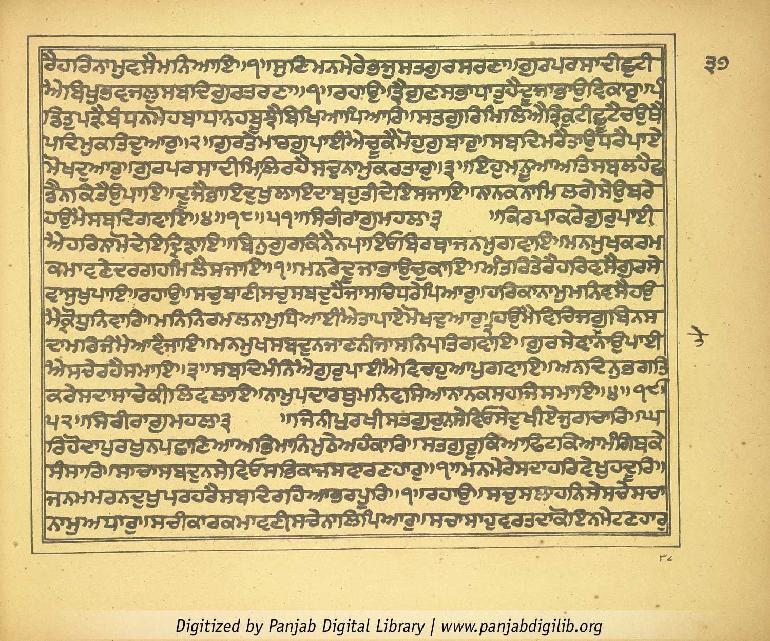 ਰੈਹਰਿਨਾਮੁਵਸੈਮਨਿਆਇ॥੧॥ਸੁਣਿਮਨਮੇਰੇਭਜੁਸਤਗੁਰਸਰਣਾ॥ਗੁਰਪਰਸਾਦੀਛੁਟੀ ੩੭
ਐਬਿਖੁਭਵਜਲੁਸਬਦਿਗੁਰਤਰਣਾ॥੧॥ਰਹਾਉ॥ਤ੍ਰੈਗੁਣਸਭਾਧਾਤੁਹੈਦੂਜਾਭਾਉਵਿਕਾਰੁ॥ਪੰ
ਡਿਤੁਪੜੈਬੰਧਨਮੋਹਬਾਧਾਨਹਬੂਝੈਬਿਖਿਆਪਿਆਰਿ॥ਸਤਗੁਰਿਮਿਲਿਐਤ੍ਰਿਕੁਟੀਛੂਟੈਚਉਥੈ
ਪਦਿਮੁਕਤਿਦੁਆਰੁ॥੨॥ਗੁਰਤੇਮਾਰਗੁਪਾਈਐਚੂਕੈਮੋਹੁਗੁਬਾਰੁ॥ਸਬਦਿਮਰੈਤਾਉਧਰੈਪਾਏ
ਮੋਖਦੁਆਰੁ॥ਗੁਰਪਰਸਾਦੀਮਿਲਿਰਹੈਸਚੁਨਾਮੁਕਰਤਾਰੁ॥੩॥ਇਹੁਮਨੂਆਅਤਿਸਬਲਹੈਛ
ਡੈਨਕਿਤੈਉਪਾਇ॥ਦੂਜੈਭਾਇਦੁਖੁਲਾਇਦਾਬਹੁਤੀਦੇਇਸਜਾਇ॥ਨਾਨਕਨਾਮਿਲਗੇਸੇਉਬਰੇ
ਹਉਮੈਸਬਦਿਗਵਾਇ॥੪॥੧੮॥੫੧॥ਸਿਰੀਰਾਗੁਮਹਲਾ੩ ॥ਕਿਰਪਾਕਰੇਗੁਰੁਪਾਈ
ਐਹਰਿਨਾਮੋਦੇਇਦ੍ਰਿੜਾਇ॥ਬਿਨੁਗੁਰਕਿਨੈਨਪਾਇਓਬਿਰਥਾਜਨਮੁਗਵਾਇ॥ਮਨਮੁਖਕਰਮ
ਕਮਾਵਣੇਦਰਗਹਮਿਲੈਸਜਾਇ॥੧॥ਮਨਰੇਦੂਜਾਭਾਉਚੁਕਾਇ॥ਅੰਤਰਿਤੇਰੈਹਰਿਵਸੈਗੁਰਸੇ
ਵਾਸੁਖੁਪਾਇ॥ਰਹਾਉ॥ਸਚੁਬਾਣੀਸਚੁਸਬਦੁਹੈਜਾਸਚਿਧਰੇਪਿਆਰੁ॥ਹਰਿਕਾਨਾਮੁਮਨਿਵਸੈਹਉ
ਮੈਕ੍ਰੋਧੁਨਿਵਾਰਿ॥ਮਨਿਨਿਰਮਲਨਾਮੁਧਿਆਈਐਤਾਪਾਏਮੋਖਦੁਆਰੁ॥੨॥ਹਉਮੈਵਿਚਿਜਗੁਬਿਨਸ
ਦਾਮਰਿਜੰਮੈਆਵੈਜਾਇ॥ਮਨਮੁਖਸਬਦੁਨਜਾਣਨੀਜਾਸਨਿਪਤਿਗਵਾਇ॥ਗੁਰਸੇਵਾਨਾਉਪਾਈ
ਐਸਚੇਰਹੈਸਮਾਇ॥੩॥ਸਬਦਿਮੰਨਿਐਗੁਰੁਪਾਈਐਵਿਚਹੁਆਪੁਗਵਾਇ॥ਅਨਦਿਨੁਭਗਤਿ
ਕਰੇਸਦਾਸਾਚੇਕੀਲਿਵਲਾਇ॥ਨਾਮੁਪਦਾਰਥੁਮਨਿਵਸਿਆਨਾਨਕਸਹਜਿਸਮਾਇ॥੪॥੧੯॥
੫੨॥ਸਿਰੀਰਾਗੁਮਹਲਾ੩ ॥ਜਿਨੀਪੁਰਖੀਸਤਗੁਰੁਨਸੇਵਿਓਸੇਦੁਖੀਏਜੁਗਚਾਰਿ॥ਘ
ਰਿਹੋਦਾਪੁਰਖੁਨਪਛਾਣਿਆਅਭਿਮਾਨਿਮੁਠੇਅਹੰਕਾਰਿ॥ਸਤਗੁਰੂਕਿਆਫਿਟਕਿਆਮੰਗਿਥਕੇ
ਸੰਸਾਰਿ॥ਸਚਾਸਬਦੁਨਸੇਵਿਓਸਭਿਕਾਜਸਵਾਰਣਹਾਰੁ॥੧॥ਮਨਮੇਰੇਸਦਾਹਰਿਵੇਖੁਹਦੂਰਿ॥
ਜਨਮਮਰਨਦੁਖੁਪਰਹਰੈਸਬਦਿਰਹਿਆਭਰਪੂਰਿ॥੧॥ਰਹਾਉ॥ਸਚੁਸਲਾਹਨਿਸੇਸਚੇਸਚਾ
ਨਾਮੁਅਧਾਰੁ॥ਸਚੀਕਾਰਕਮਾਵਣੀਸਚੇਨਾਲਿਪਿਆਰੁ॥ਸਚਾਸਾਹੁਵਰਤਦਾਕੋਇਨਮੇਟਣਹਾਰੁ
Digitized by Panjab Digital Library | www.panjabdigilib.org